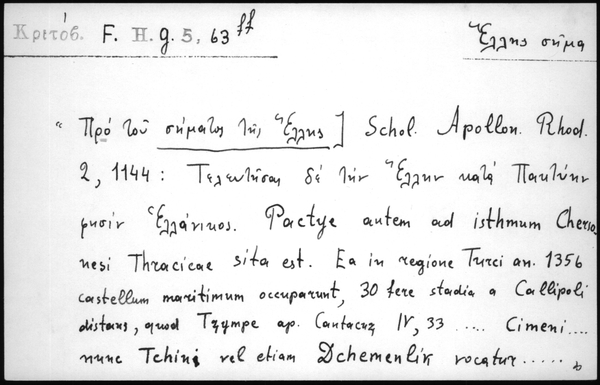 Κριτόβ. F. H. g. 5, 63 ff
Ἕλλης σῆμα
“ Πρό τοῦ σήματος τῆς Ἕλλης] Schol. Apollon. Rhod.
2, 1144 : Τελευτῆσαι δέ τήν Ἕλλην κατά Πακτύην
φησίν Ἑλλάνικος. Pactye autem ad isthmum Cherso
nesi Thracicae sita est. Ea in regione Turci an. 1356
castellum maritimum occuparunt, 30 fere stadia a Callipoli
distans, quod Τζympe ap. Cantacuz IV, 33 ..... Cimeni....
nunc Tchini vel etiam Dchemenlik vocatur ..... »